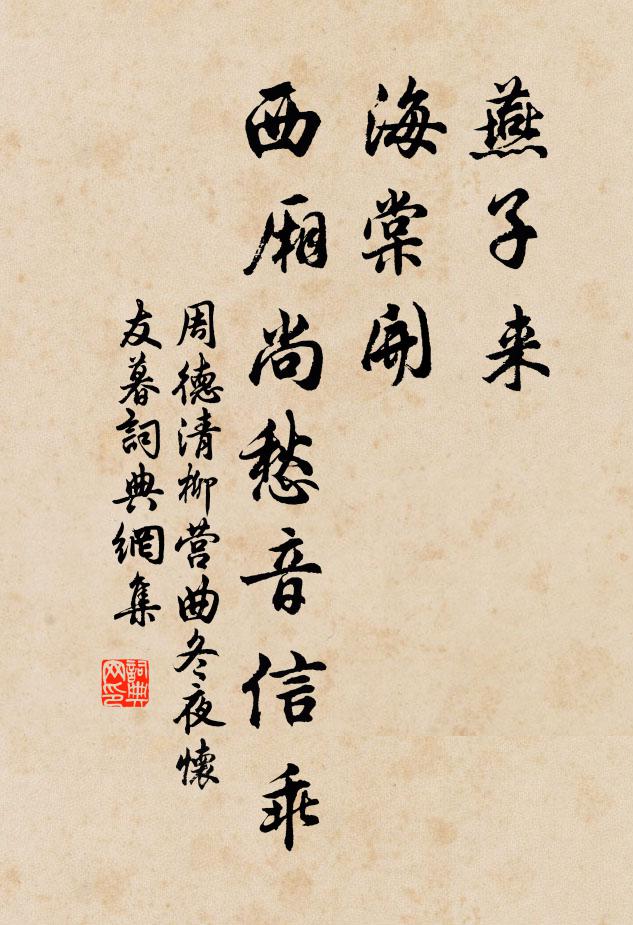 燕子来
海棠開
西厢尚愁音信乖
周德清柳营曲冬夜懷
友暮詞典網集
詞典
网印